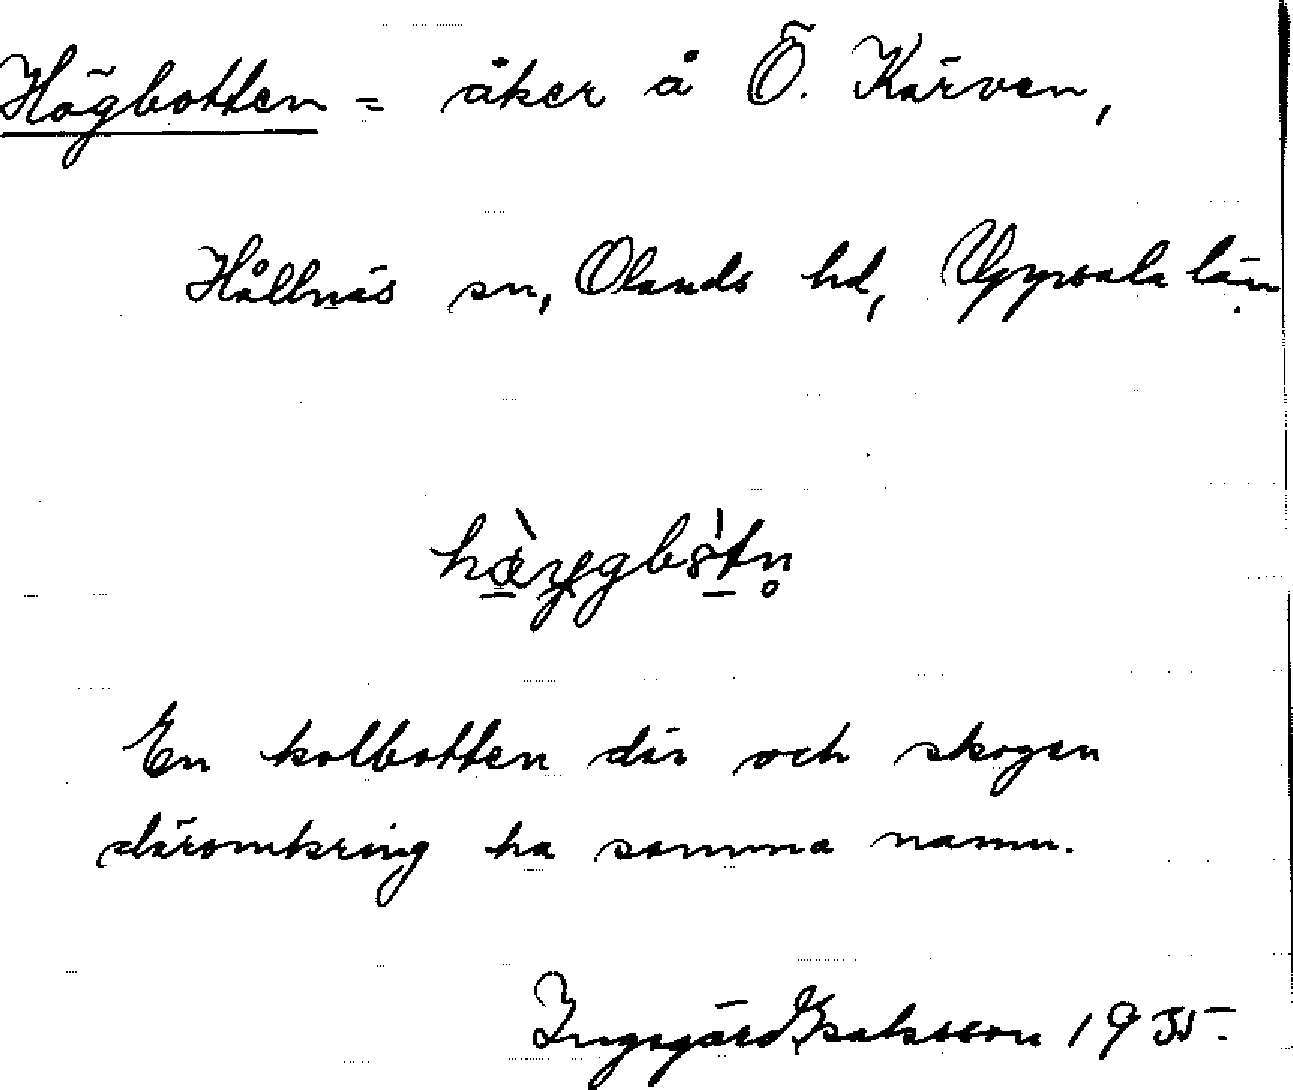 Högbotten = åker å Ö. Kärven,
Hållnäs sn, Olands hd, Uppsala län.
En kolbotten där och skogen
däromkring ha samma namn.
Ingegärd Isaksson 1935.